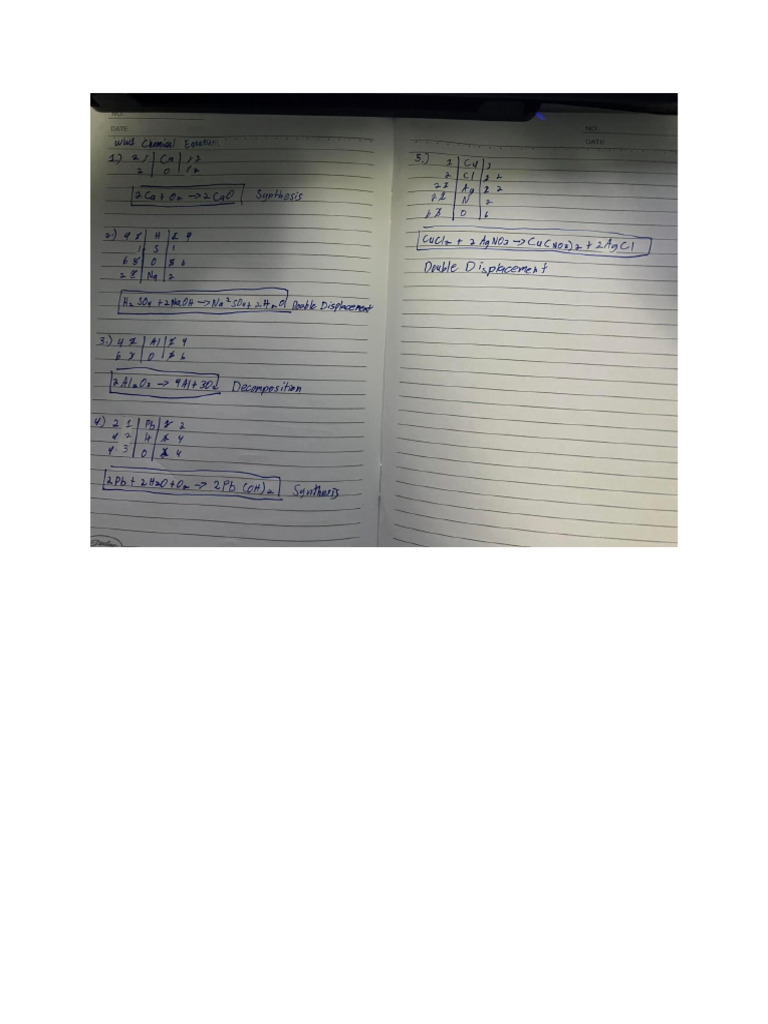 NO.
DATE
Word Chemical Equation
1) 2 1 | Ca | 1 2
2 | O | 1 2
2Ca + O₂ → 2CaO Synthesis
2) 4 3 | H | 2 4
1 | S | 1
6 5 | O | 5 6
2 1 | Na | 2
H₂SO₄ + 2NaOH → Na²SO₄ + 2H₂O Double Displacement
3.) 4 2 | Al | 1 4
6 3 | O | 2 6
2Al₂O₃ → 4Al + 3O₂ Decomposition
4) 2 1 | Pb | 1 2
4 2 | H | 2 4
4 3 | O | 2 4
2Pb + 2H₂O + O₂ → 2Pb(OH)₂ Synthesis
NO.
DATE
5.) 1 | Cu | 1
2 | Cl | 1 2
2 1 | Ag | 1 2
2 1 | N | 2
6 3 | O | 6
CuCl₂ + 2AgNO₃ → Cu(NO₃)₂ + 2AgCl
Double Displacement